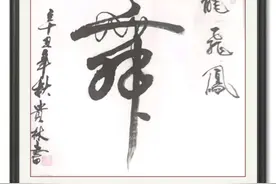 龍飛鳳
舞
辛丑年秋貴林書